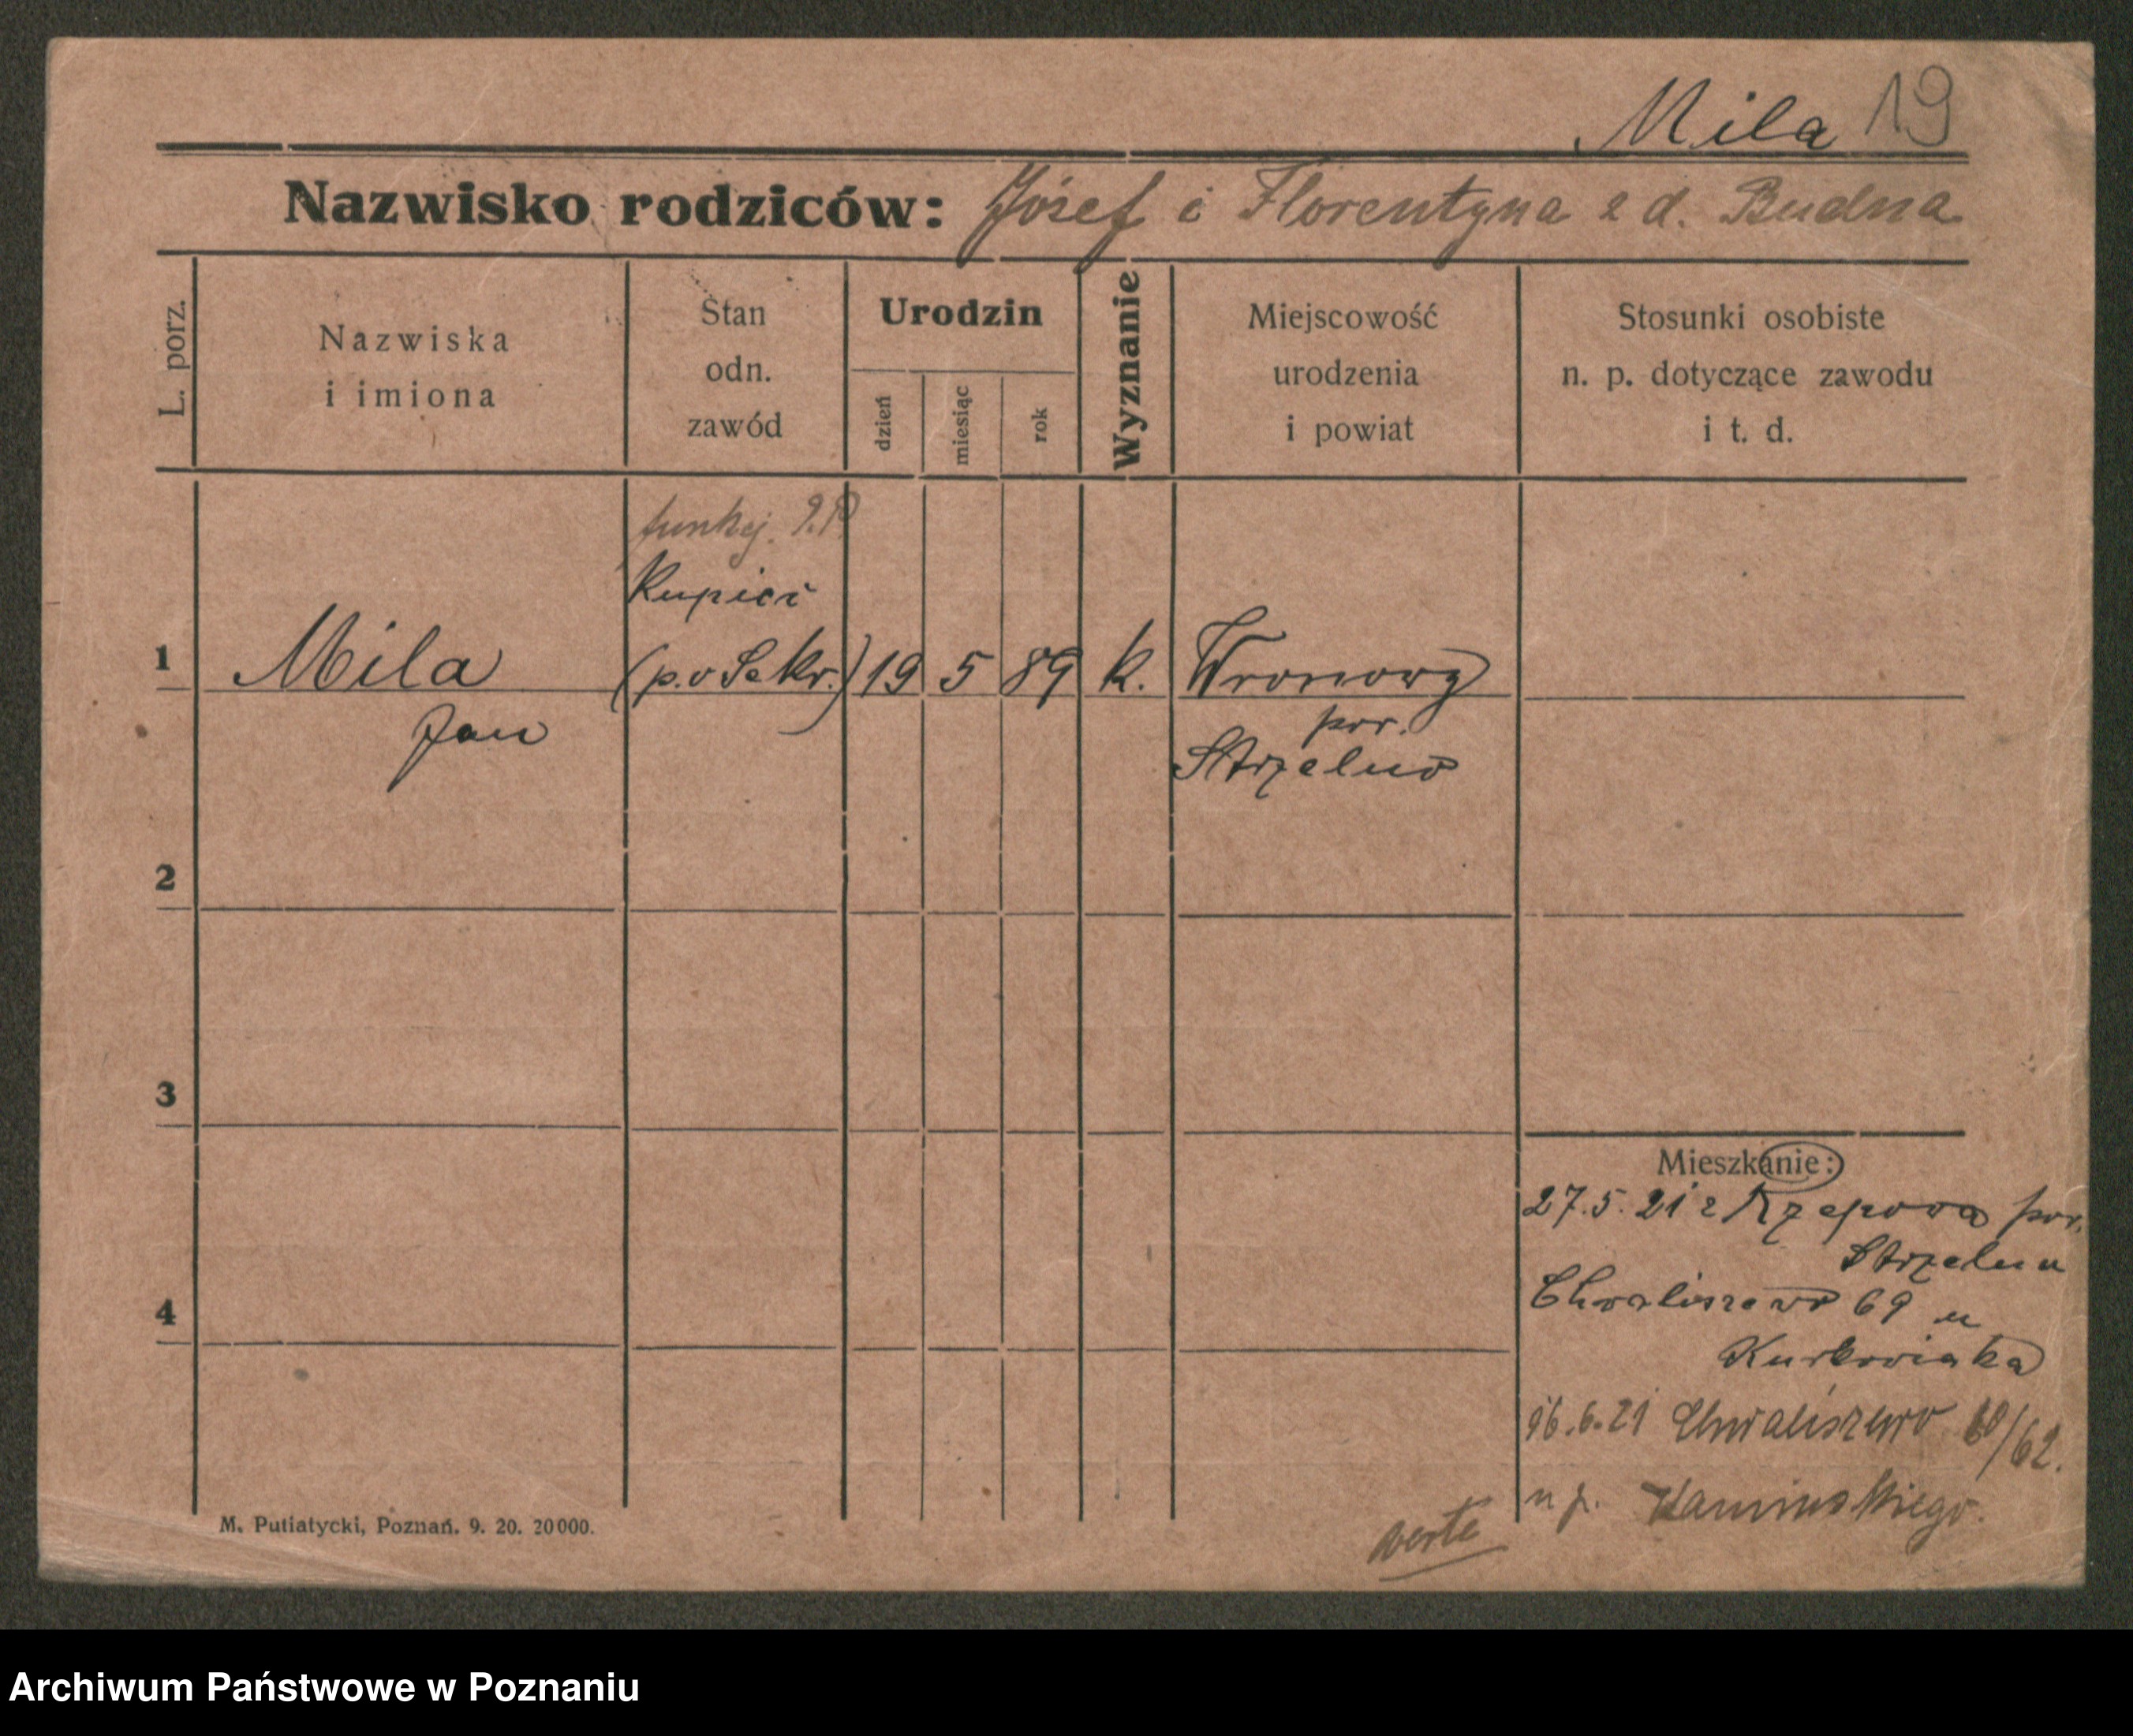 Mila 19
Nazwisko rodziców: Józef i Florentyna z d. Budna
L. porz.
Nazwiska
i imiona
Stan
odn.
zawód
Urodzin
dzień
miesiąc
rok
Wyznanie
Miejscowość
urodzenia
i powiat
Stosunki osobiste
n. p. dotyczące zawodu
i t. d.
funkcj.
Kupiec
1 Mila (p.v Sekr.) 19 5 89 k. Wronowy
Jan
pow.
Strzelno
2
3
4
Mieszkanie:
27.5.21 z Rzepowa pow.
Strzelna
Chwaliszewo 69 u
Kurkowiaka
16.6.21 Chwaliszewo /62.
u p. Kamińskiego.
verte
M. Putiatycki, Poznań. 9. 20. 20000.
Archiwum Państwowe w Poznaniu